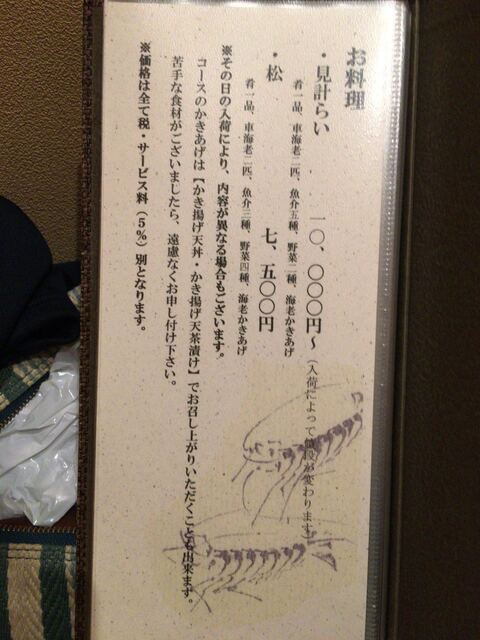 お料理
・見計らい 一〇、〇〇〇円～（入荷によって値段が変わります）
肴一品、車海老二匹、魚介五種、野菜二種、海老かきあげ
・松 七、五〇〇円
肴一品、車海老二匹、魚介三種、野菜四種、海老かきあげ
※その日の入荷により、内容が異なる場合もございます。
コースのかきあげは【かき揚げ天丼・かき揚げ天茶漬け】でお召し上がりいただくことも出来ます。
苦手な食材がございましたら、遠慮なくお申し付け下さい。
※価格は全て税・サービス料（5%）別となります。